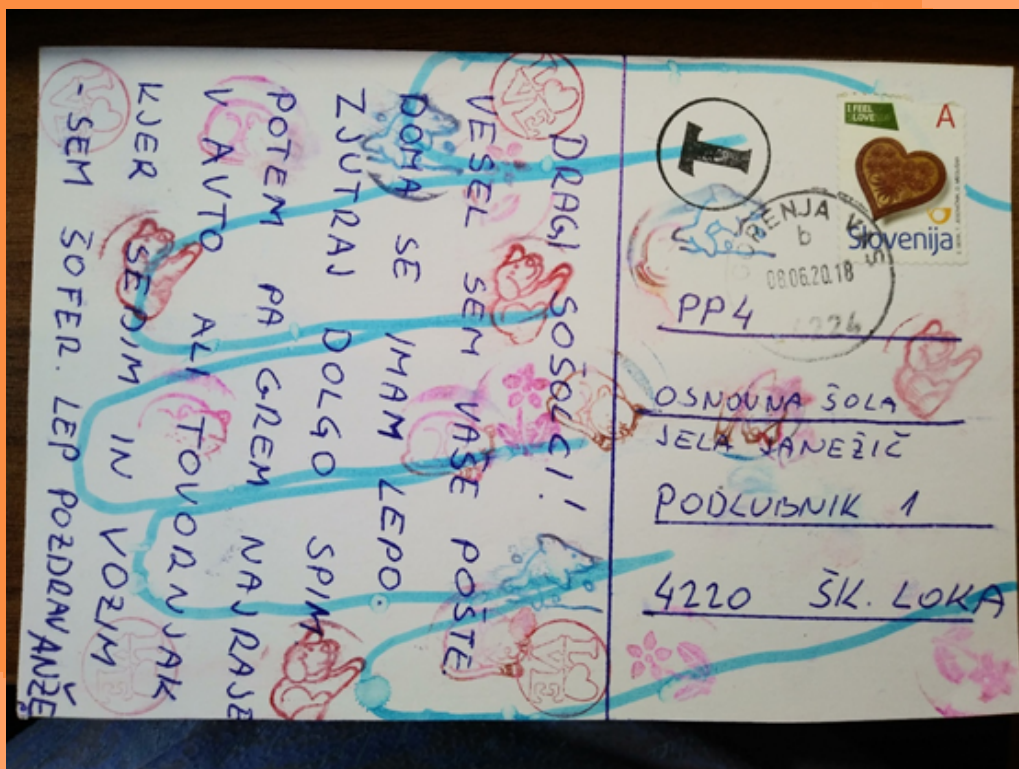 DRAGI SOŠOLCI!
VESEL SEM VAŠE POŠTE
DOMA SE IMAM LEPO.
ZJUTRAJ DOLGO SPIM
POTEM PA GREM NAJRAJE
V AVTO ALI TOVORNJAK
KJER SEDIM IN VOZIM
-SEM ŠOFER. LEP POZDRAV ANŽE
I FEEL
LOVE
A
Slovenija
T
b
08.06.20.18
4224
PP4
OSNOVNA ŠOLA
JELA JANEŽIČ
PODLUBNIK 1
4220 ŠK. LOKA
LOVE
LOVE
LOVE
LOVE